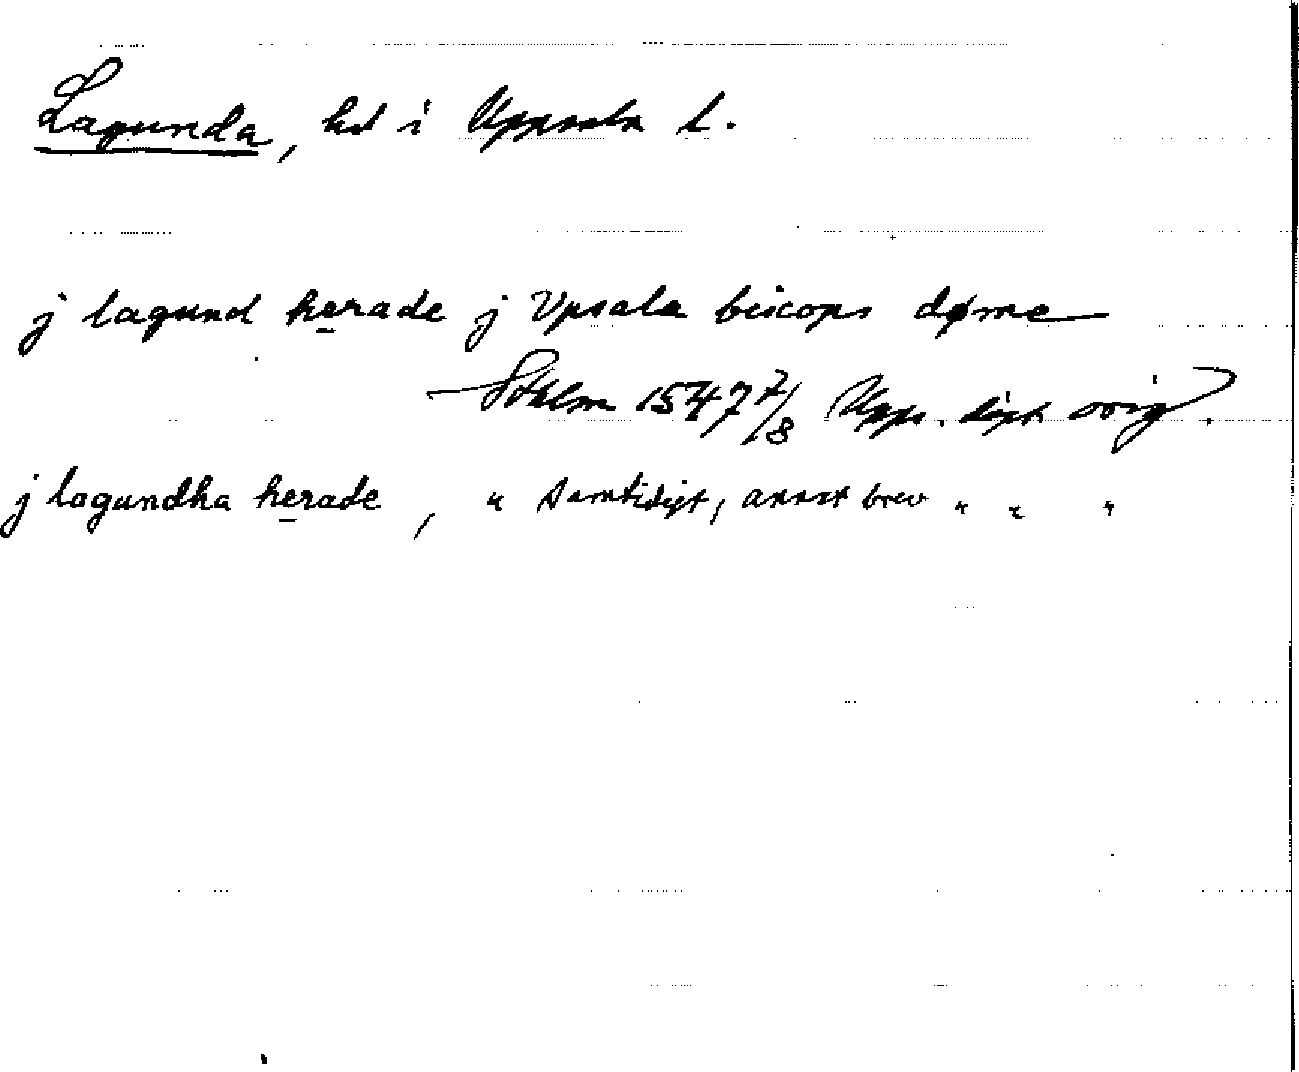 Lagunda, hd i Uppsala l.
j lagund herade j Vpsala biscops døme
Sthlm 1547 7/8 Upps. dipl. orig.
j lagundha herade, " samtidigt, annat brev " " "